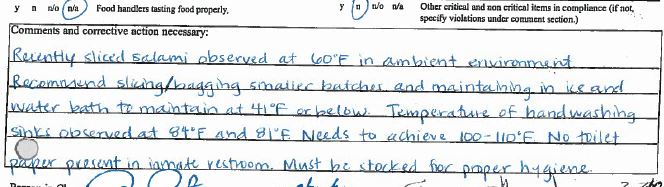 y n n/o n/a Food handlers tasting food properly. y n n/o n/a Other critical and non critical items in compliance (if not,
specify violations under comment section.)
Comments and corrective action necessary:
Recently sliced salami observed at 60°F in ambient environment
Recommend slicing/bagging smaller batches and maintaining in ice and
water bath to maintain at 41°F or below. Temperature of handwashing
sinks observed at 84°F and 81°F. Needs to achieve 100-110°F. No toilet
paper present in inmate restroom. Must be stocked for proper hygiene.